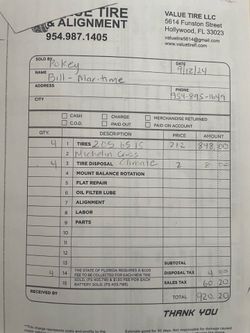 VALUE TIRE
& ALIGNMENT
954.987.1405
VALUE TIRE LLC
5614 Funston Street
Hollywood, FL 33023
valuetire5614@gmail.com
www.valuetirefl.com
SOLD BY Pokey
DATE 9/12/24
NAME Bill - Maritime
ADDRESS
PHONE 954-895-1649
CITY
CASH CHARGE MERCHANDISE RETURNED
C.O.D. PAID OUT PAID ON ACCOUNT
QTY. DESCRIPTION PRICE AMOUNT
4 1 TIRES 205 65 15 212 848.00
2 Michelin Cross
4 3 TIRE DISPOSAL Climate 2 8.00
4 MOUNT BALANCE ROTATION
5 FLAT REPAIR
6 OIL FILTER LUBE
7 ALIGNMENT
8 LABOR
9 PARTS
10
11
12
13 SUBTOTAL
4 14 THE STATE OF FLORIDA REQUIRES A $1.00 DISPOSAL TAX 4.00
FEE TO BE COLLECTED FOR EACH NEW TIRE
15 SOLD (FS 403.718) & $1.50 FEE FOR EACH SALES TAX 60.20
BATTERY SOLD (FS 403.7185)
RECEIVED BY TOTAL 920.20
THANK YOU